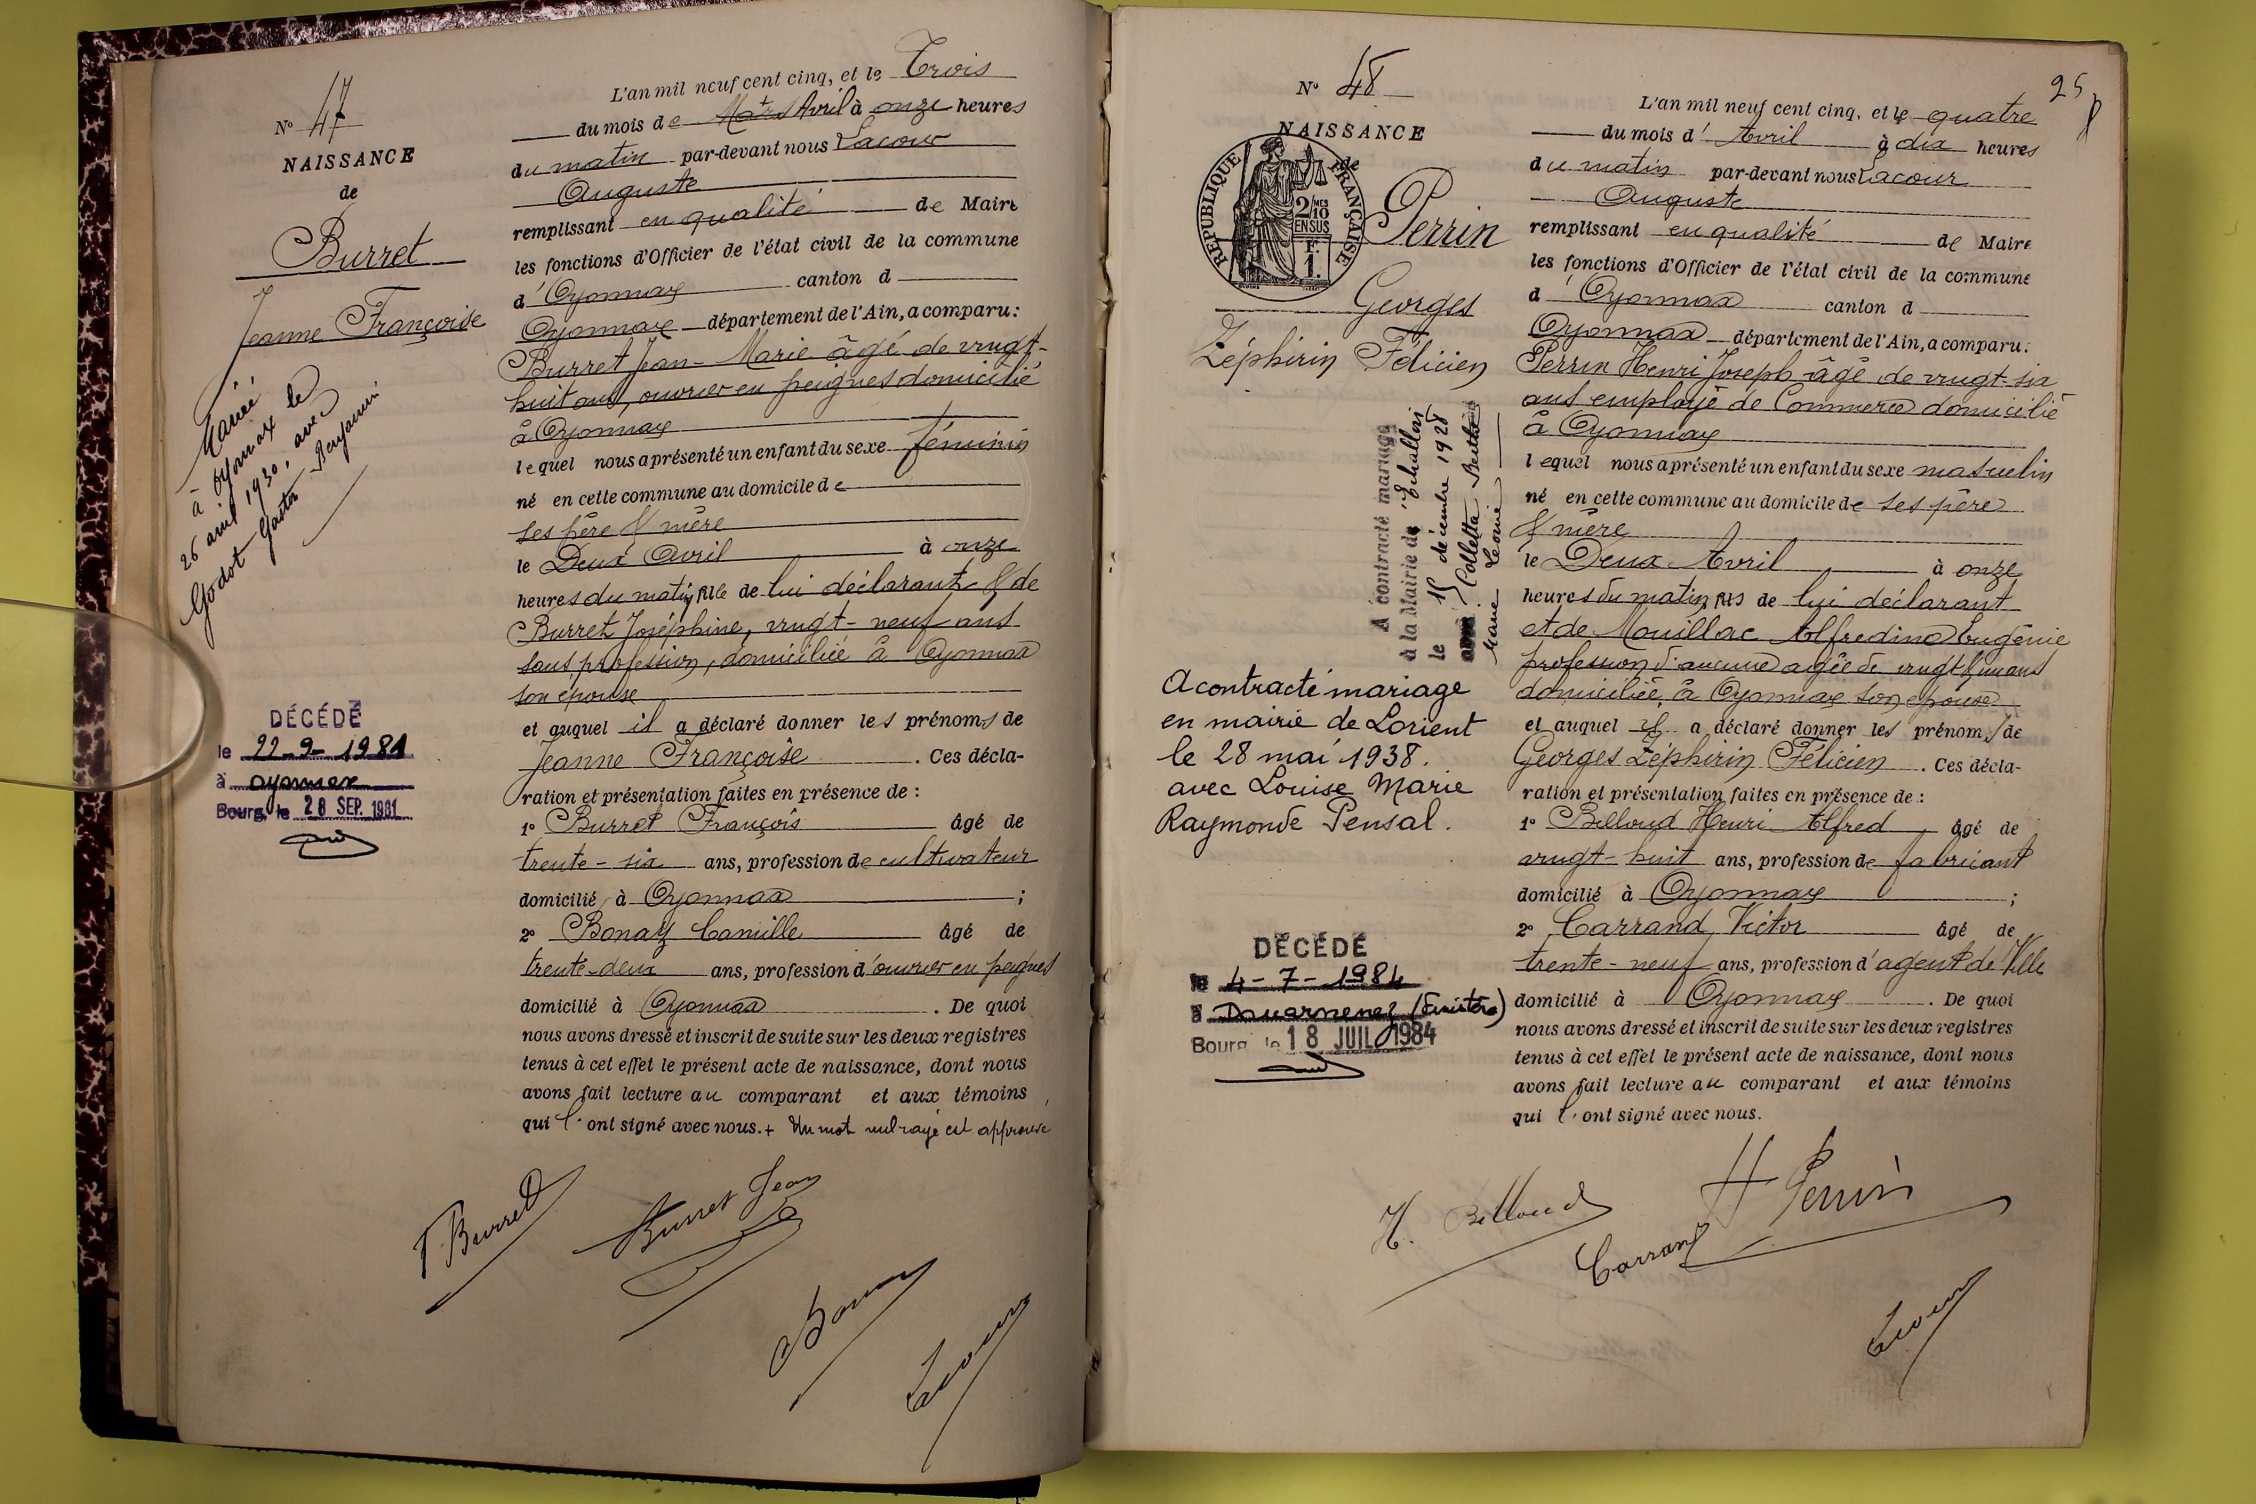 N° 47
NAISSANCE
de
Burret
Jeanne Françoise
Mariée
à Oyonnax le
26 avril 1930, avec
Godot Gaston Benjamin
DÉCÉDÉ
le 22-9-1981
à Oyonnax
Bourg, le 28 SEP. 1981
L'an mil neuf cent cinq, et le Trois
du mois de Mars + Avril à onze heures
du matin par-devant nous Lacour
Auguste
remplissant en qualité de Maire
les fonctions d'Officier de l'état civil de la commune
d'Oyonnax canton d
Oyonnax département de l'Ain, a comparu:
Burret Jean-Marie âgé de vingt-
huit ans, ouvrier en peignes domicilié
à Oyonnax
lequel nous a présenté un enfant du sexe féminin
né en cette commune au domicile de
ses père & mère
le Deux Avril à onze
heures du matin, fille de lui déclarant & de
Burret Joséphine, vingt-neuf ans
sans profession, domiciliée à Oyonnax
son épouse
et auquel il a déclaré donner les prénoms de
Jeanne Françoise . Ces décla-
ration et présentation faites en présence de :
1° Burret François âgé de
trente-six ans, profession de cultivateur
domicilié à Oyonnax ;
2° Bonaz Camille âgé de
trente-deux ans, profession d'ouvrier en peignes
domicilié à Oyonnax . De quoi
nous avons dressé et inscrit de suite sur les deux registres
tenus à cet effet le présent acte de naissance, dont nous
avons fait lecture au comparant et aux témoins
qui l'ont signé avec nous. + Un mot nul rayé est approuvé
F. Burret
Burret Jean
Bonaz
Lacour
25
N° 48
NAISSANCE
de
RÉPUBLIQUE FRANÇAISE
2/10 MES
EN SUS
F.
1.
Perrin
Georges
Zéphirin Félicien
A contracté mariage
à la Mairie de Echallon
le 15 décembre 1928
avec Colletta Berthe
Marie Léonie
A contracté mariage
en mairie de Lorient
le 28 mai 1938.
avec Louise Marie
Raymonde Pensal.
DÉCÉDÉ
le 4-7-1984
à Douarnenez (Finistère)
Bourg, le 18 JUIL 1984
L'an mil neuf cent cinq, et le quatre
du mois d'Avril à dix heures
du matin par-devant nous Lacour
Auguste
remplissant en qualité de Maire
les fonctions d'Officier de l'état civil de la commune
d'Oyonnax canton d
Oyonnax département de l'Ain, a comparu:
Perrin Henri Joseph âgé de vingt-six
ans employé de Commerce domicilié
à Oyonnax
lequel nous a présenté un enfant du sexe masculin
né en cette commune au domicile de ses père
& mère
le Deux Avril à onze
heures du matin, fils de lui déclarant
et de Mouillac Alfredine Eugénie
profession d'aucune agée de vingt & un ans
domiciliée à Oyonnax son épouse
et auquel il a déclaré donner les prénoms de
Georges Zéphirin Félicien . Ces décla-
ration et présentation faites en présence de :
1° Billoud Henri Alfred âgé de
vingt-huit ans, profession de fabricant
domicilié à Oyonnax ;
2° Carrand Victor âgé de
trente-neuf ans, profession d'agent de Ville
domicilié à Oyonnax . De quoi
nous avons dressé et inscrit de suite sur les deux registres
tenus à cet effet le présent acte de naissance, dont nous
avons fait lecture au comparant et aux témoins
qui l'ont signé avec nous.
H. Billoud
H Perrin
Carrand
Lacour